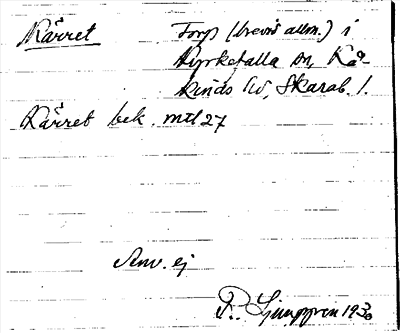 Kärret Torp (brevis allm.) i
Kyrkefalla sn, Kå-
kinds hd, Skarab. l.
Kärret bek. mtl 27
Anv. ej
R. Ljunggren 1930